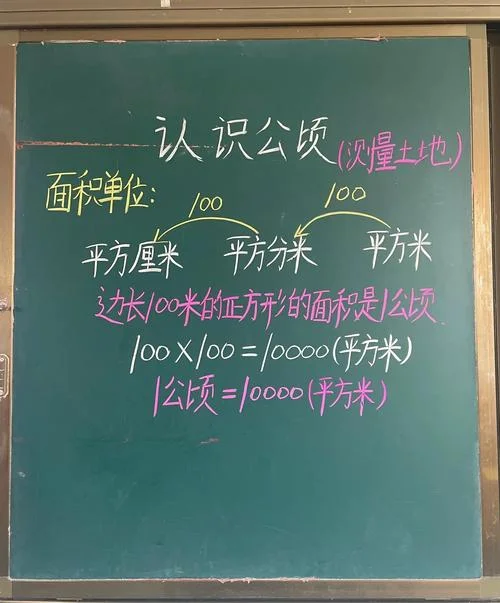 认识公顷(测量土地)
面积单位:
100 100
平方厘米 平方分米 平方米
边长100米的正方形的面积是1公顷
100×100=10000(平方米)
1公顷=10000(平方米)